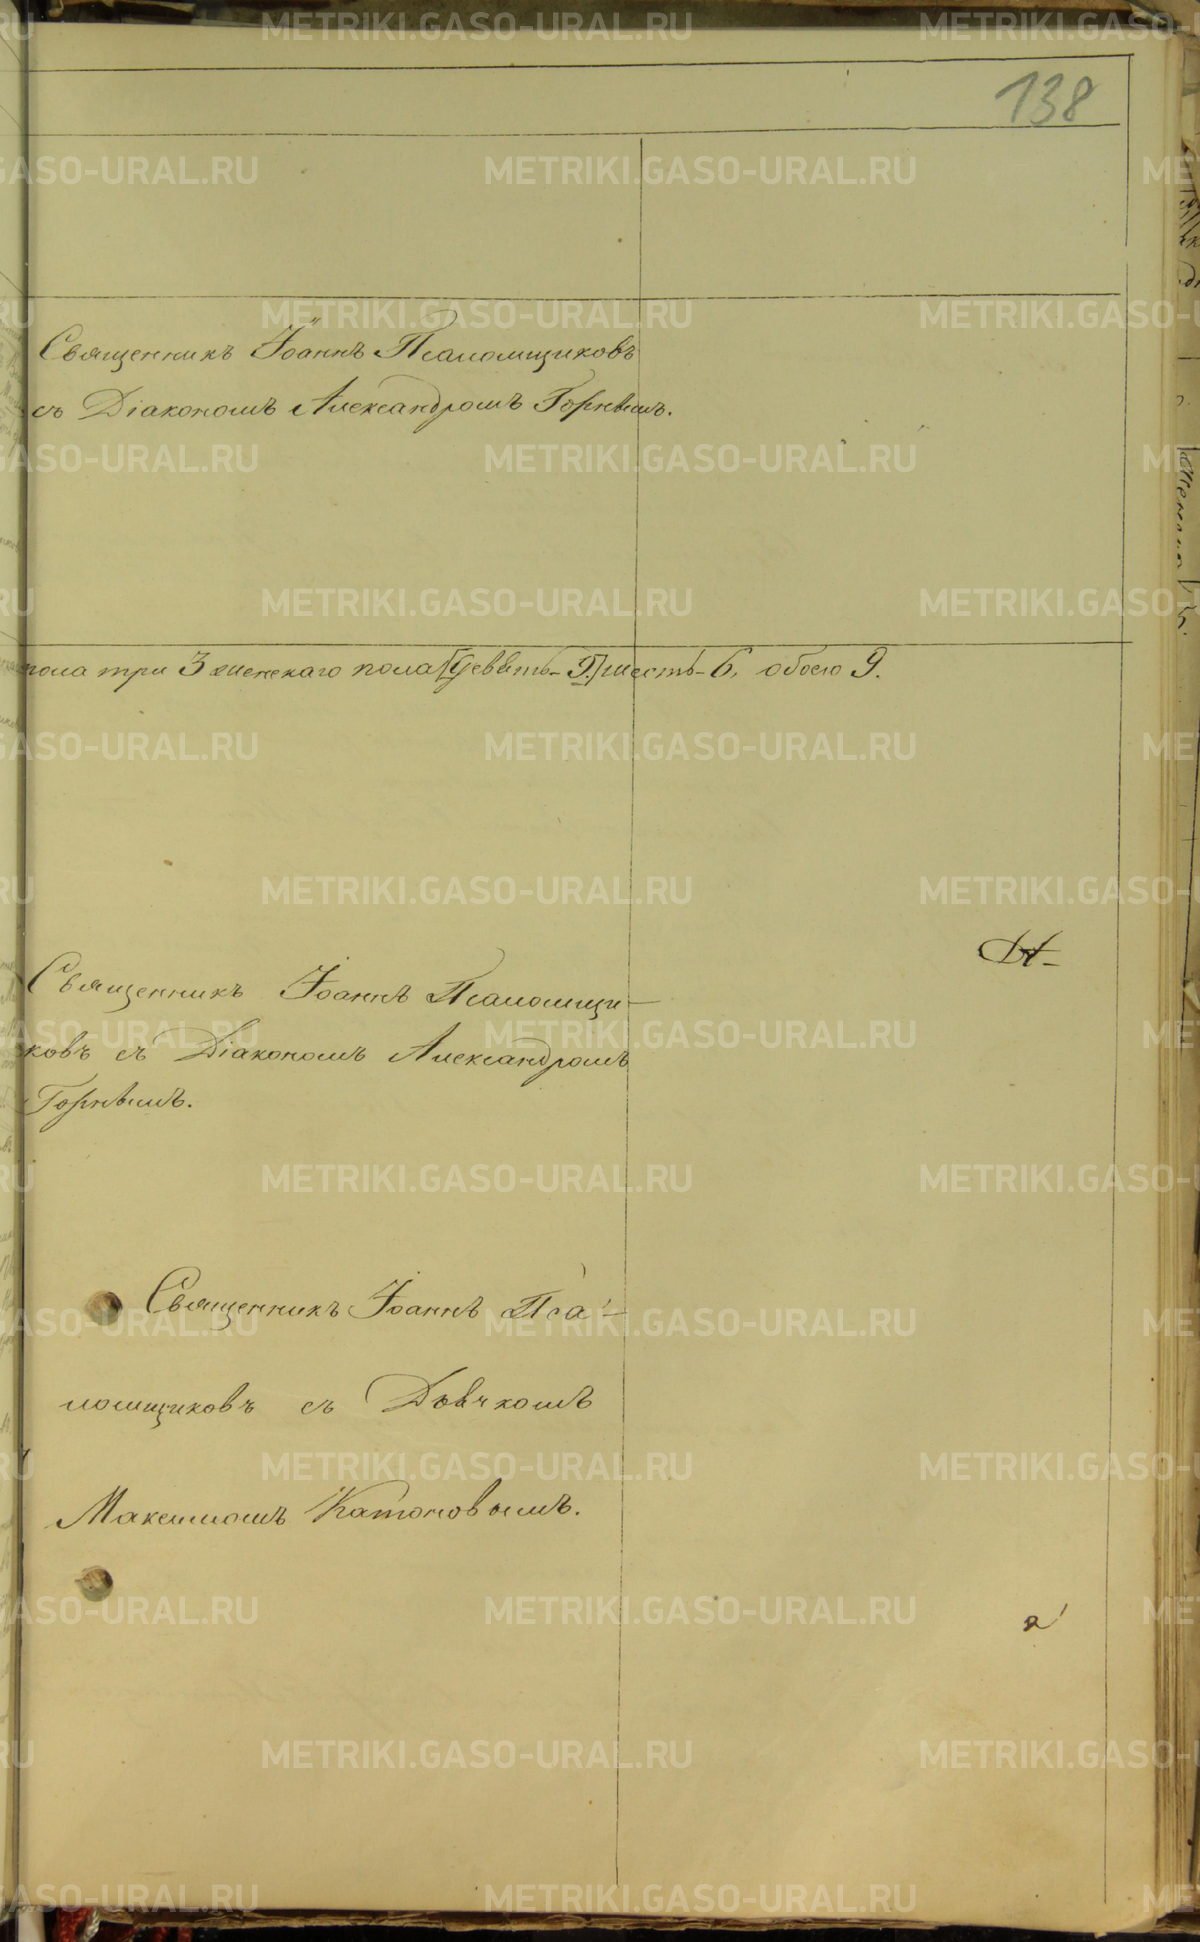 138
Священникъ Іоаннъ Псаломщиковъ
съ Діакономъ Александромъ Горнымъ.
пола три 3 женскаго пола [девять-9.] шесть-6, обоего 9.
Священникъ Іоаннъ Псаломщи-
ковъ съ Діакономъ Александромъ
Горнымъ.
Священникъ Іоаннъ Пса-
ломщиковъ съ Дьячкомъ
Максимомъ Катоновымъ.
METRIKI.GASO-URAL.RU